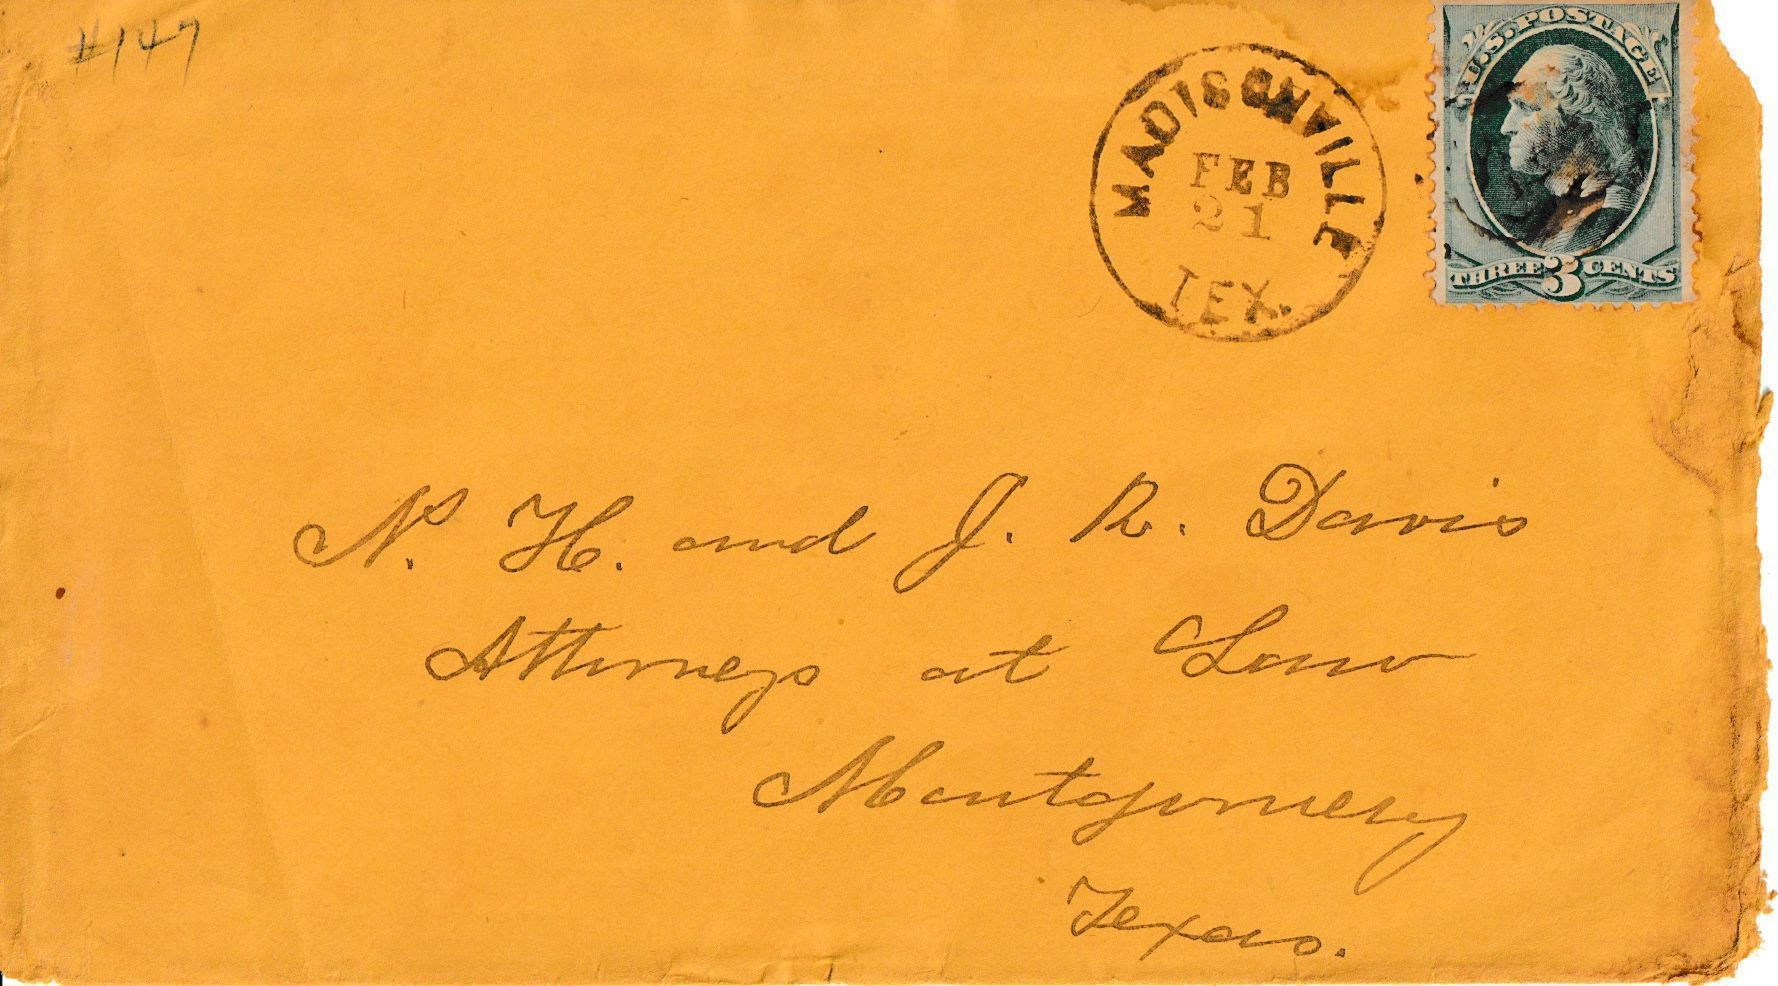 #147
MADISONVILLE
FEB
21
TEX.
U.S. POSTAGE
THREE 3 CENTS
N. H. and J. R. Davis
Attorneys at Law
Montgomery
Texas.